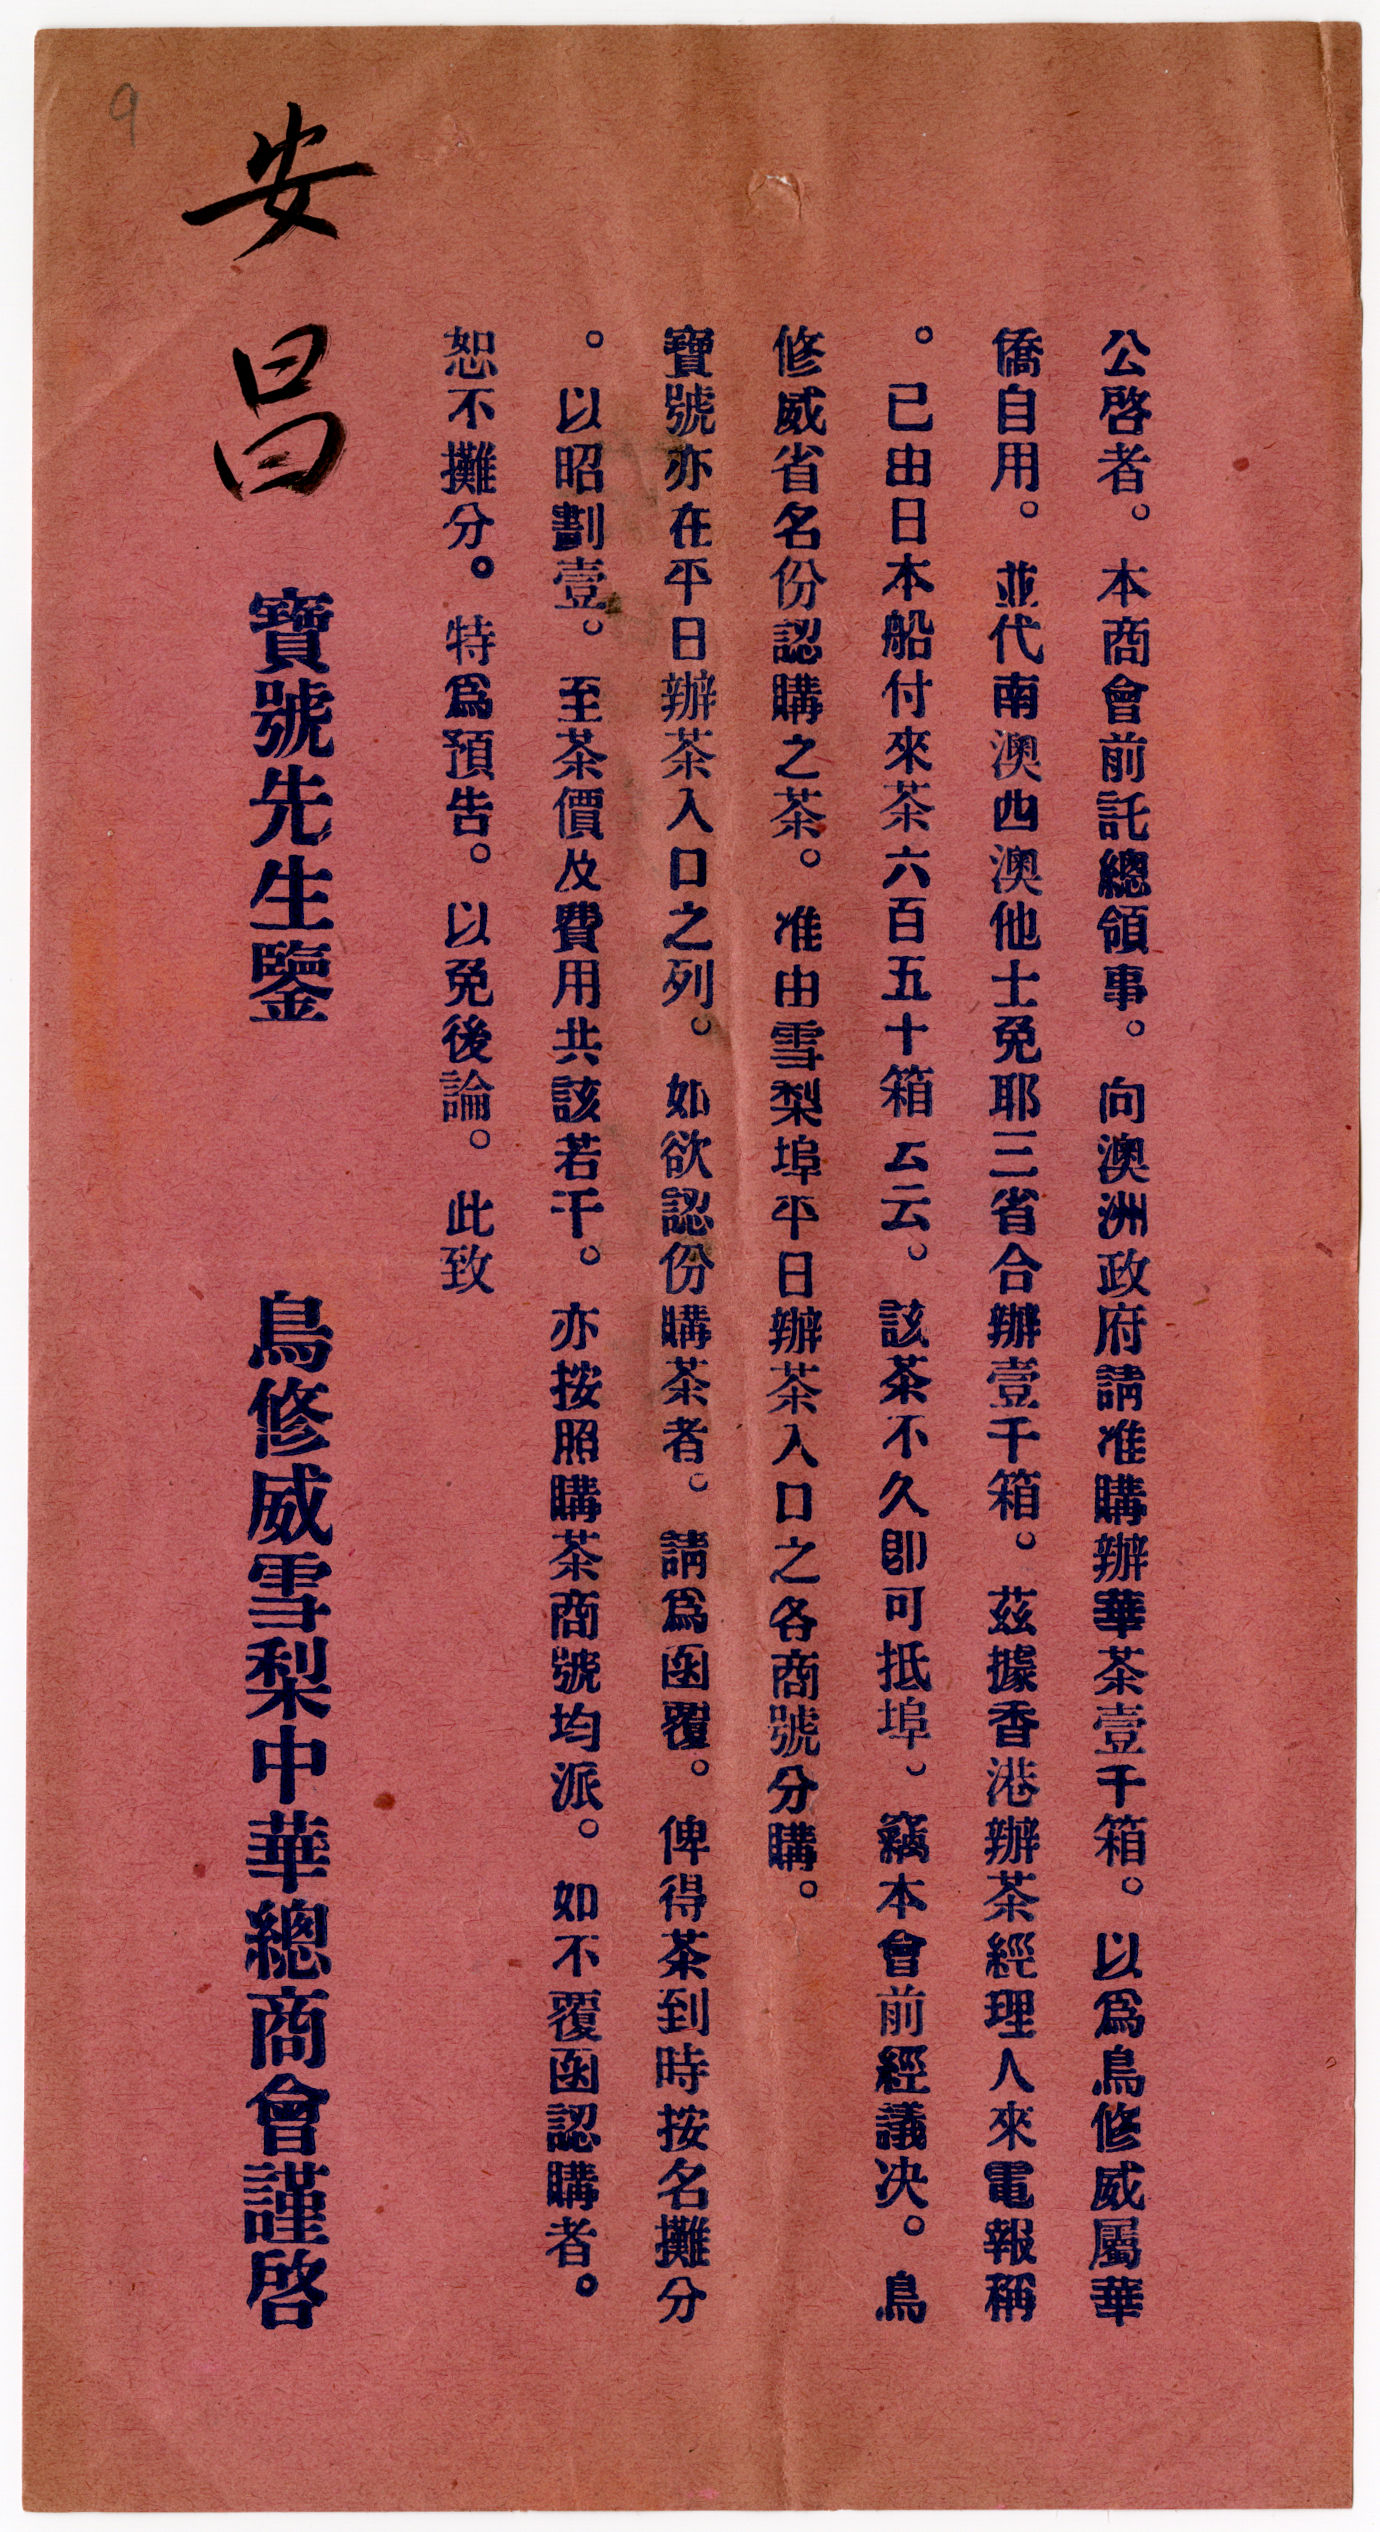 公啓者。本商會前託總領事。向澳洲政府請准購辦華茶壹千箱。以爲鳥修威屬華
僑自用。並代南澳西澳他士免耶三省合辦壹千箱。茲據香港辦茶經理人來電報稱
。已由日本船付來茶六百五十箱云云。該茶不久即可抵埠。竊本會前經議决。鳥
修威省名份認購之茶。准由雪梨埠平日辦茶入口之各商號分購。
寶號亦在平日辦茶入口之列。如欲認份購茶者。請爲函覆。俾得茶到時按名攤分
。以昭劃壹。至茶價及費用共該若干。亦按照購茶商號均派。如不覆函認購者。
恕不攤分。特爲預告。以免後論。此致
安昌 寶號先生鑒 鳥修威雪梨中華總商會謹啓
9